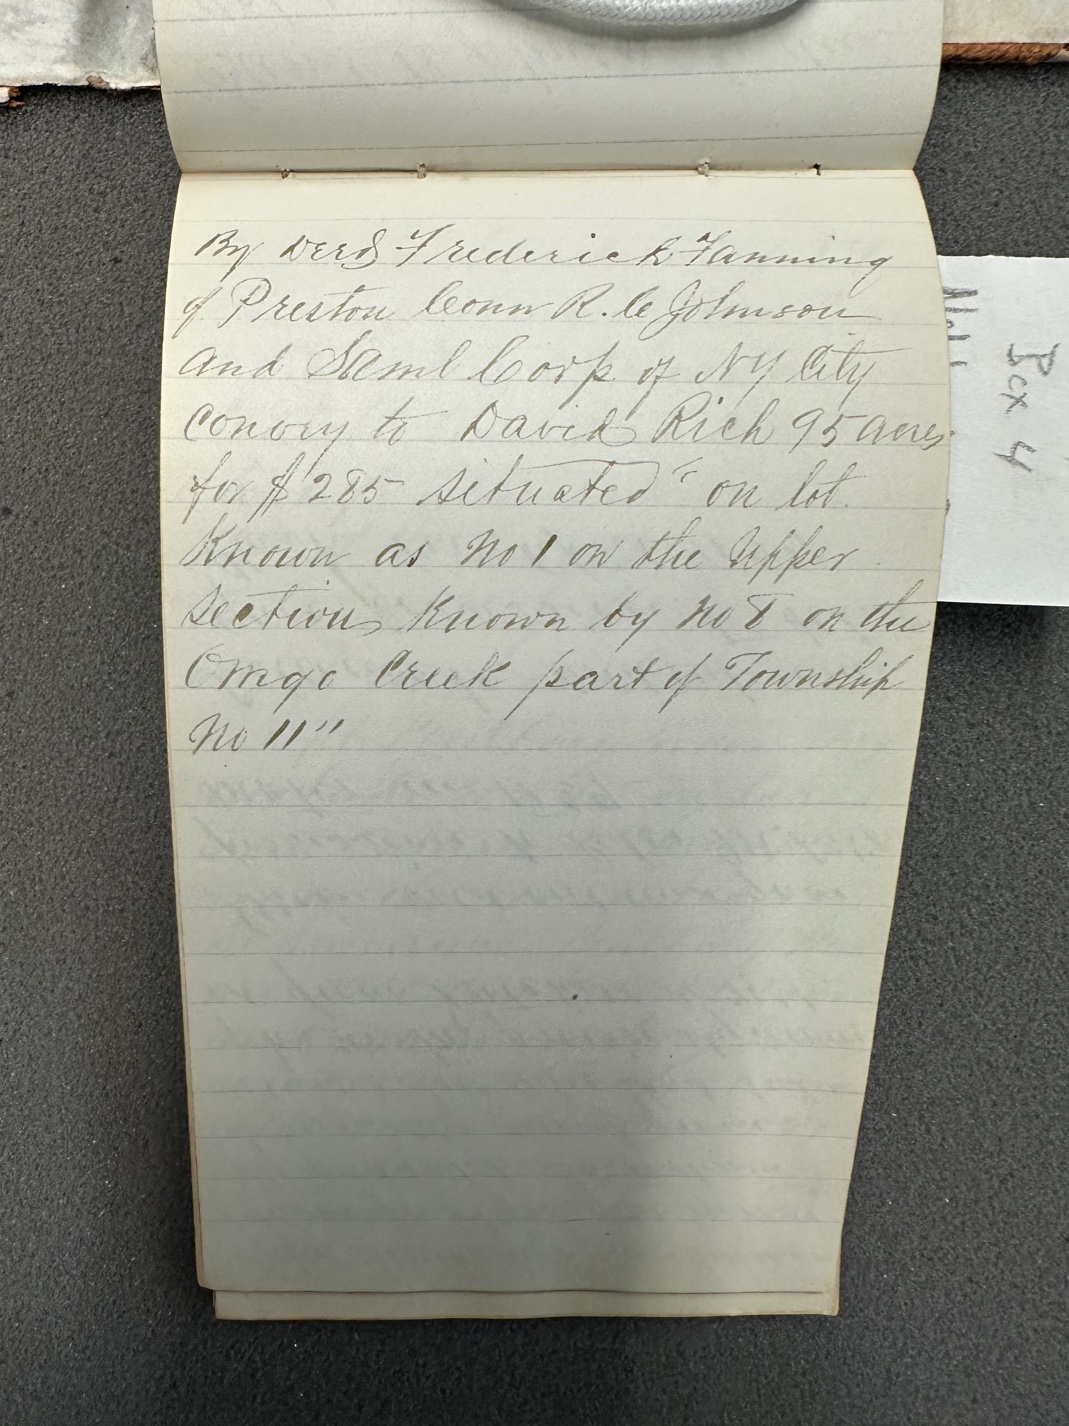 By Deed Frederick Fanning
of Preston Conn R. C Johnson
and Saml Corp of NY City
convey to David Rich 95 acres
for $285 situated "on lot
Known as No 1 on the Upper
section Known by No 8 on the
Owego Creek part of Township
No 11"
Box 4